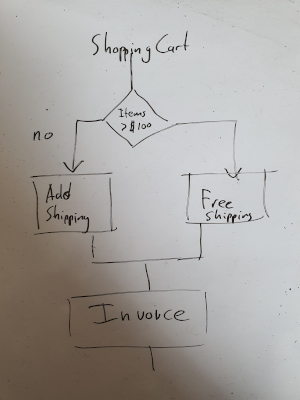 Shopping Cart
Items
> $100
no
Add
Shipping
Free
Shipping
Invoice